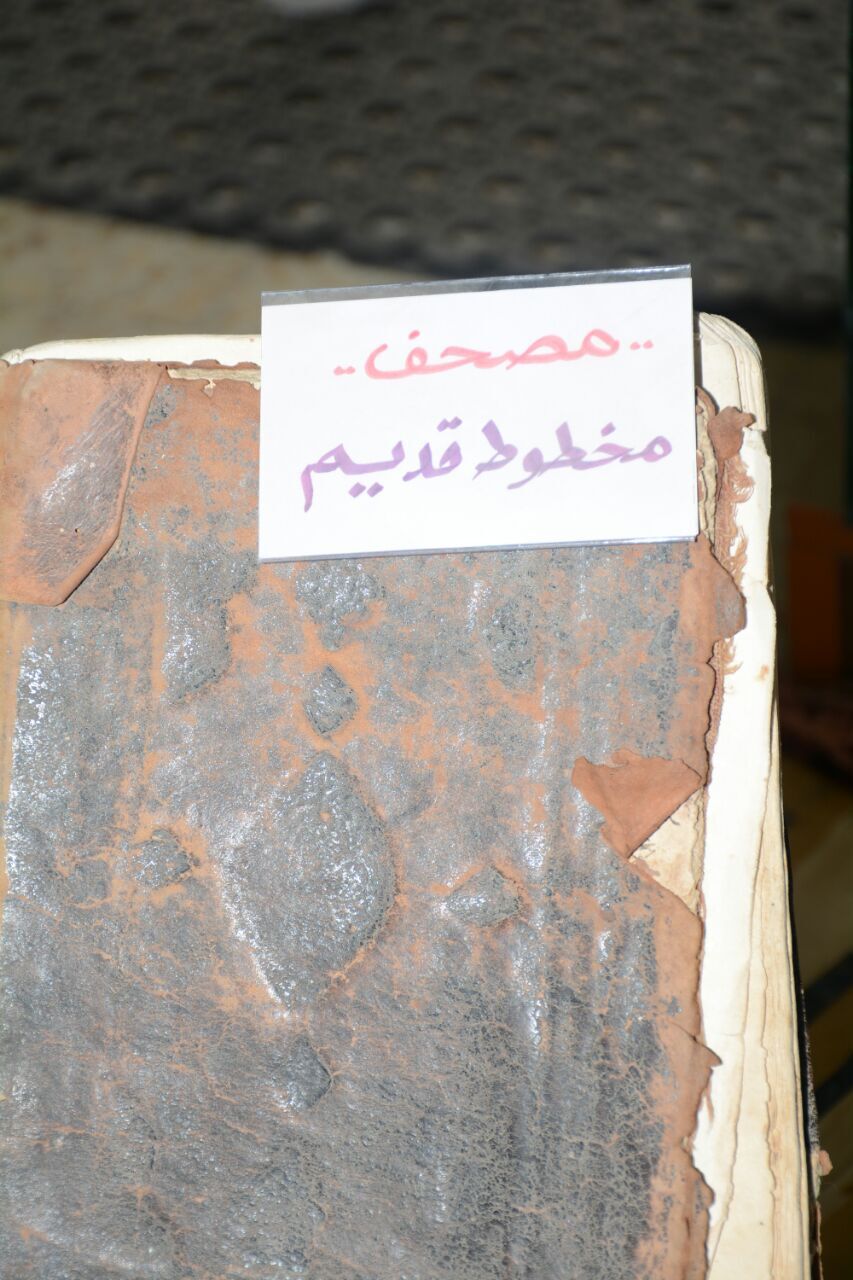 ..مصحف..
مخطوط قديم